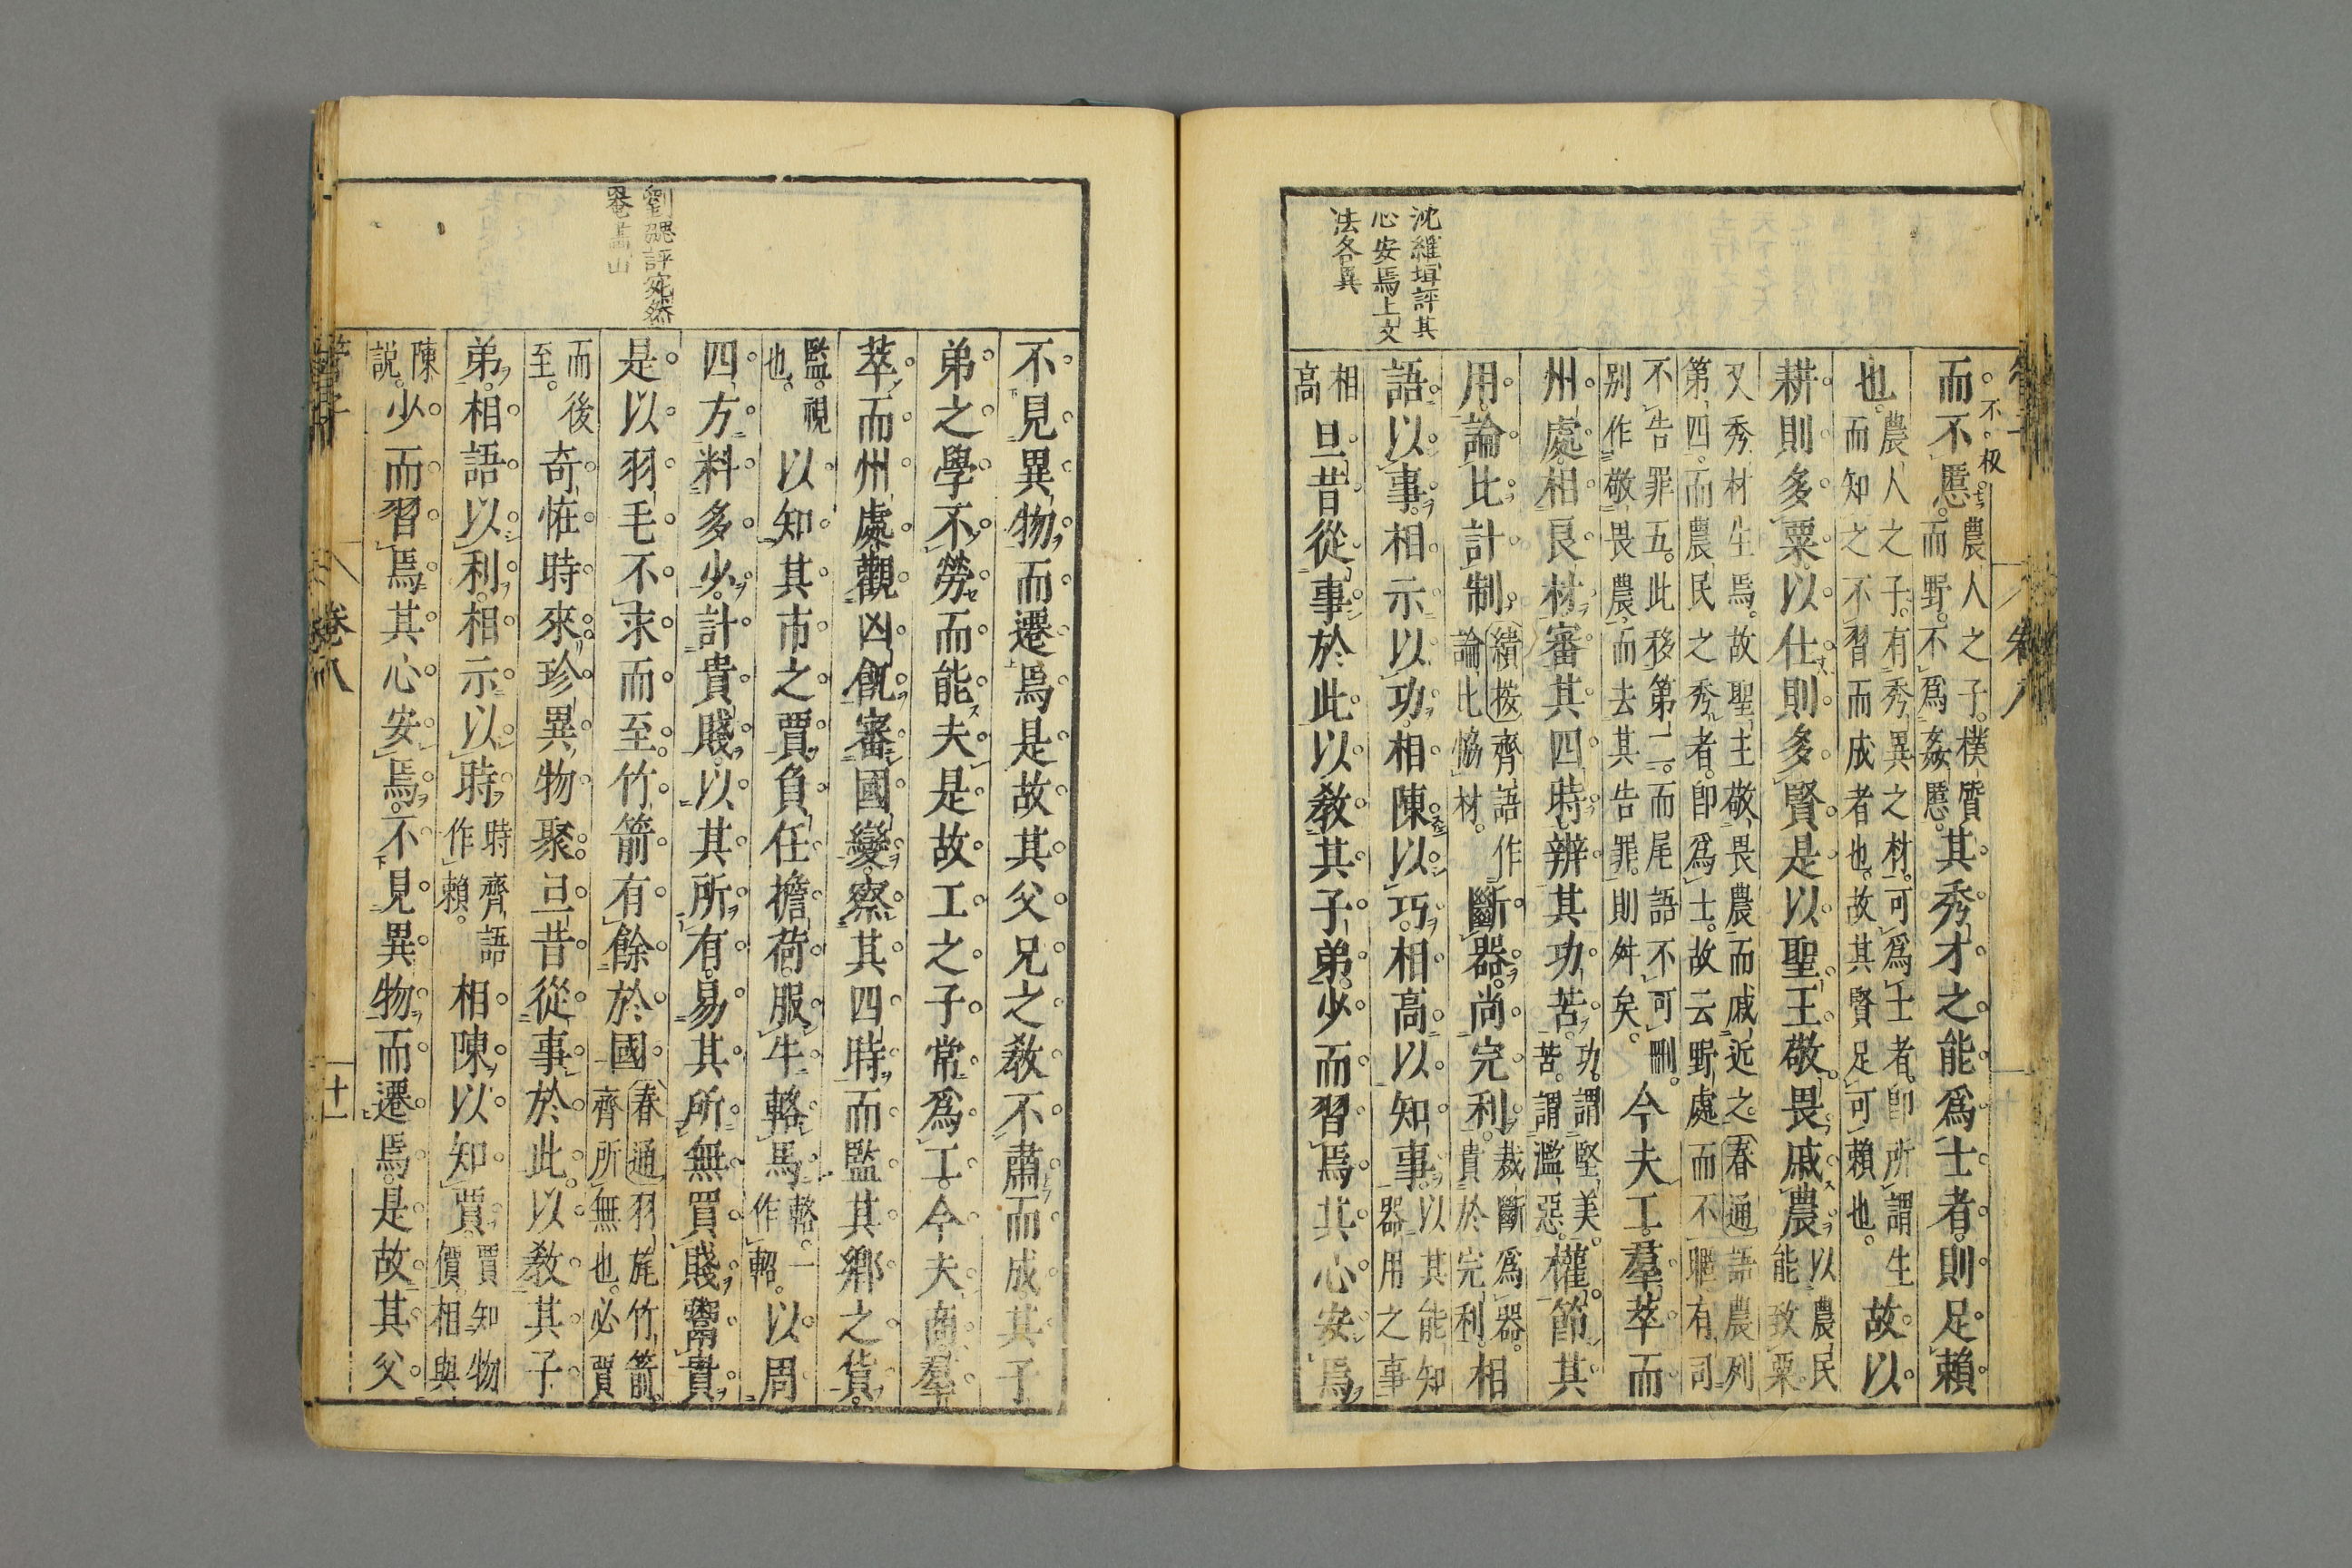 沈維垣評其
心安焉上文
法各異
管子
卷八
不
权
而不慝農人之子樸質
而野不爲姦慝其秀才之能爲士者則足賴
也農人之子有秀異之材可爲士者卽所謂生
而知之不習而成者也故其賢足可賴也故以
耕則多粟以仕則多賢是以聖王敬畏戚農以農民
能致粟
又秀材生焉故聖主敬畏農而戚近之春通語農列
第四而農民之秀者卽爲士故云野處而不暱有司
不告罪五此移第二而尾語不可刪
别作敬畏農而去其告罪則舛矣今夫工羣萃而
州處相良材審其四時辨其功苦功謂堅美
苦謂濫惡權節其
用論比計制績按齊語作
論比協材斷器尚完利裁斷爲器
貴於完利相
語以事相示以功相陳以巧相高以知事以其能知
器用之事
相
高旦昔從事於此以教其子弟少而習焉其心安焉
劉勰評宛然
不見異物而遷焉是故其父兄之敎不肅而成其子
弟之學不勞而能夫是故工之子常爲工今夫商羣
萃而州處觀凶飢審國變察其四時而監其鄉之貨
監視
也以知其市之賈負任擔荷服牛輅馬輅一
作軺以周
四方料多少計貴賤以其所有易其所無買賤鬻貴
是以羽毛不求而至竹箭有餘於國春通羽旄竹箭
齊所無也必賈
而後
至奇怪時來珍異物聚旦昔從事於此以敎其子
弟相語以利相示以時時齊語
作賴相陳以知賈賈知物
價相與
陳
説少而習焉其心安焉不見異物而遷焉是故其父
管子
卷八
十一